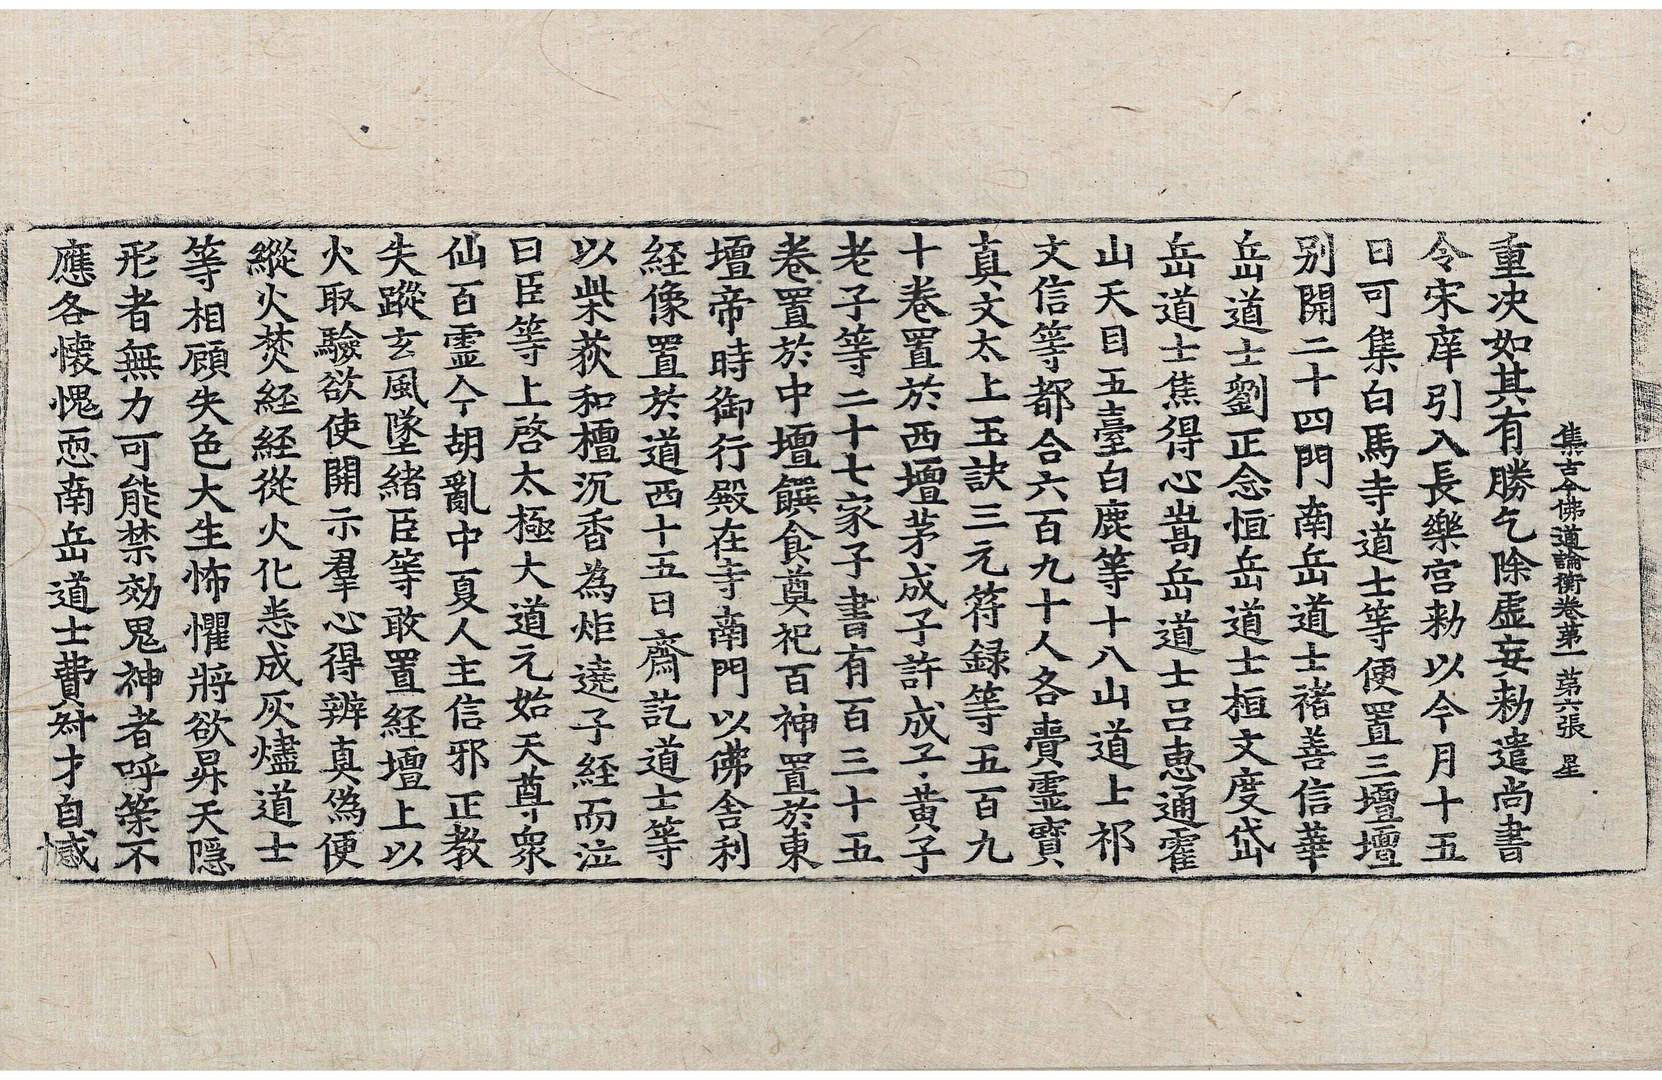 集古今佛道論衡卷苐一 苐六張 星
重次如其有勝乞除虛妄勑遣尚書
令宋庠引入長樂宮勑以今月十五
日可集白馬寺道士等便置三壇壇
別開二十四門南岳道士褚善信華
岳道士劉正念恒岳道士桓文度岱
岳道士焦得心嵩岳道士呂惠通霍
山天目五臺白鹿等十八山道士祁
文信等都合六百九十人各賷靈寶
真文太上玉訣三元符録等五百九
十卷置於西壇茅成子許成子黃子
老子等二十七家子書有百三十五
卷置於中壇饌食奠祀百神置於東
壇帝時御行殿在寺南門以佛舍利
經像置於道西十五日齋訖道士等
以柴荻和檀沉香為炬遶子經而泣
曰臣等上啓太極大道元始天尊衆
仙百靈今胡亂中夏人主信邪正教
失蹤玄風墜緒臣等敢置經壇上以
火取驗欲使開示羣心得辨真偽便
縱火焚經經從火化悉成灰燼道士
等相顧失色大生怖懼將欲昇天隱
形者無力可能禁効鬼神者呼策不
應各懷愧恧南岳道士費叔才自憾